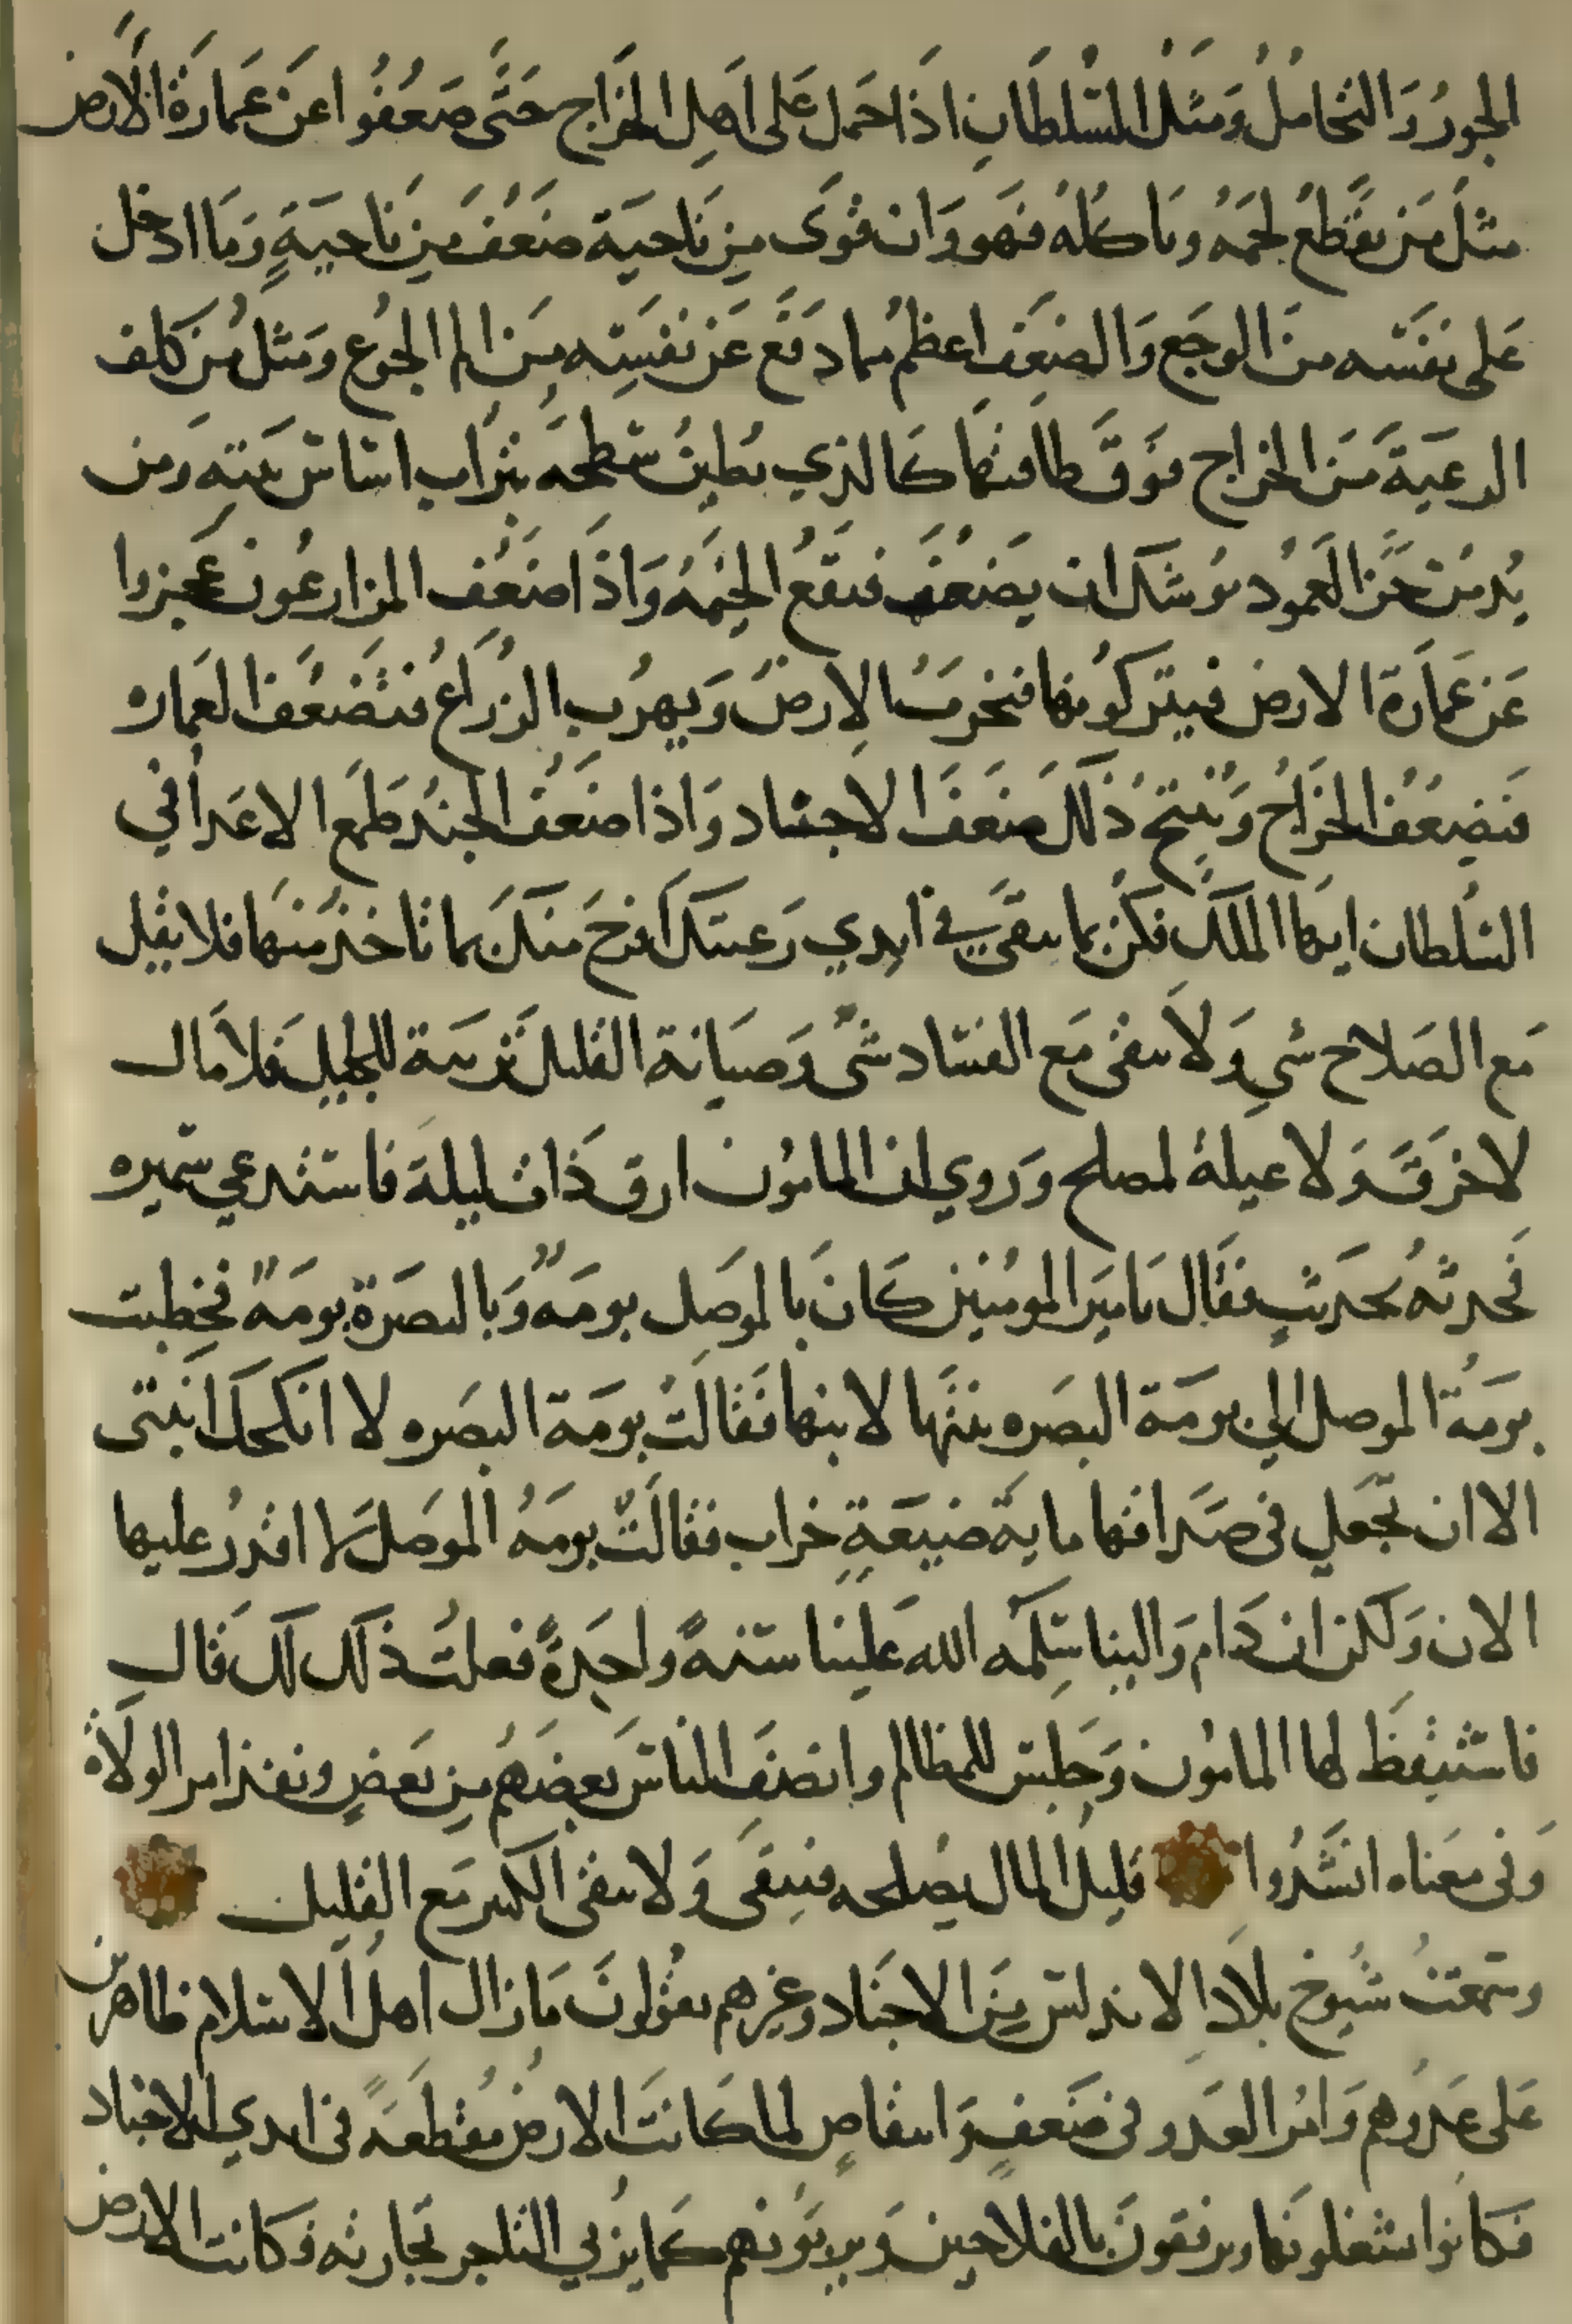 الجور والتحامل ومثل السلطان اذا حمل على اهل الخراج حتى ضعفوا عن عمارة الارض
مثل من يقطع لحمه وياكله فهو وان قوى من ناحية ضعف من ناحية وما ادخل
على نفسه من الوجع والضعف اعظم مما دفع عن نفسه من الم الجوع ومثل من كلف
الرعية من الخراج فوق طاقتها كالذي يطين سطحه بتراب اساس بيته ومن
يدمن حز العمود يوشك ان يضعف فتقع الخيمه واذا ضعف المزارعون عجزوا
عن عمارة الارض فيتركونها فتخرب الارض ويهرب الزراع فتضعف العماره
فيضعف الخراج وينتج ذلك ضعف الاجناد واذا ضعف الجند طمع الاعدا في
السلطان ايها الملك فكن بما يبقى في ايدي رعيتك افرح منك بما تاخذ منها فلا يقل
مع الصلاح شي ولا يبقى مع الفساد شى وصيانة القليل تربية للجليل فلا مال
لاخرق ولا عيلة لمصلح وروي ان المامون ارق ذات ليلة فاستدعي سميره
فحدثه بحديث فقال يامير المومنين كان بالموصل بومة وبالبصرة بومة فخطبت
بومة الموصل الي بومة البصره بنتها لابنها فقالت بومة البصره لا انكحك ابنتى
الا ان تجعلي في صداقها ماية ضيعة خراب فقالت بومه الموصل لا اقدر عليها
الان ولكن ان دام والينا سلمه الله علينا سنة واحدة فعلت ذلك لك قال
فاستيقظ لها المامون وجلس للمظالم وانصف الناس بعضهم من بعض وتفقد امر الولاة
وفى معناه انشدوا قليل المال يصلحه فيبقى ولا يبقى الكثير مع القليل
وسمعت شيوخ بلاد الاندلس من الاجناد وغيرهم يقولون ما زال اهل الاسلام ظاهرين
على عدوهم وامر العدو في ضعف وانتقاص لما كانت الارض مقطعة في ايدي الاجناد
فكانوا يستغلونها ويرفقون بالفلاحين ويربونهم كما يربي التاجر تجارته فكانت الارض